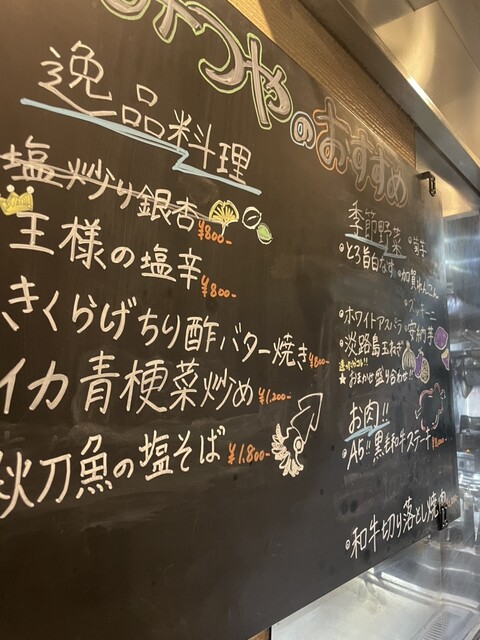 みつやのおすすめ
逸品料理
塩炒り銀杏 ¥800-
王様の塩辛 ¥800-
きくらげちり酢バター焼き ¥800-
イカ青梗菜炒め ¥1,200-
秋刀魚の塩そば ¥1,800-
季節野菜
・菊芋
・とろ旨白なす
・加賀れんこん
・ズッキーニ
・ホワイトアスパラ
・安納芋
・淡路島玉ねぎ
★おまかせ盛り合わせ!!
お肉!!
・A5!!黒毛和牛ステーキ
・和牛切り落とし焼肉